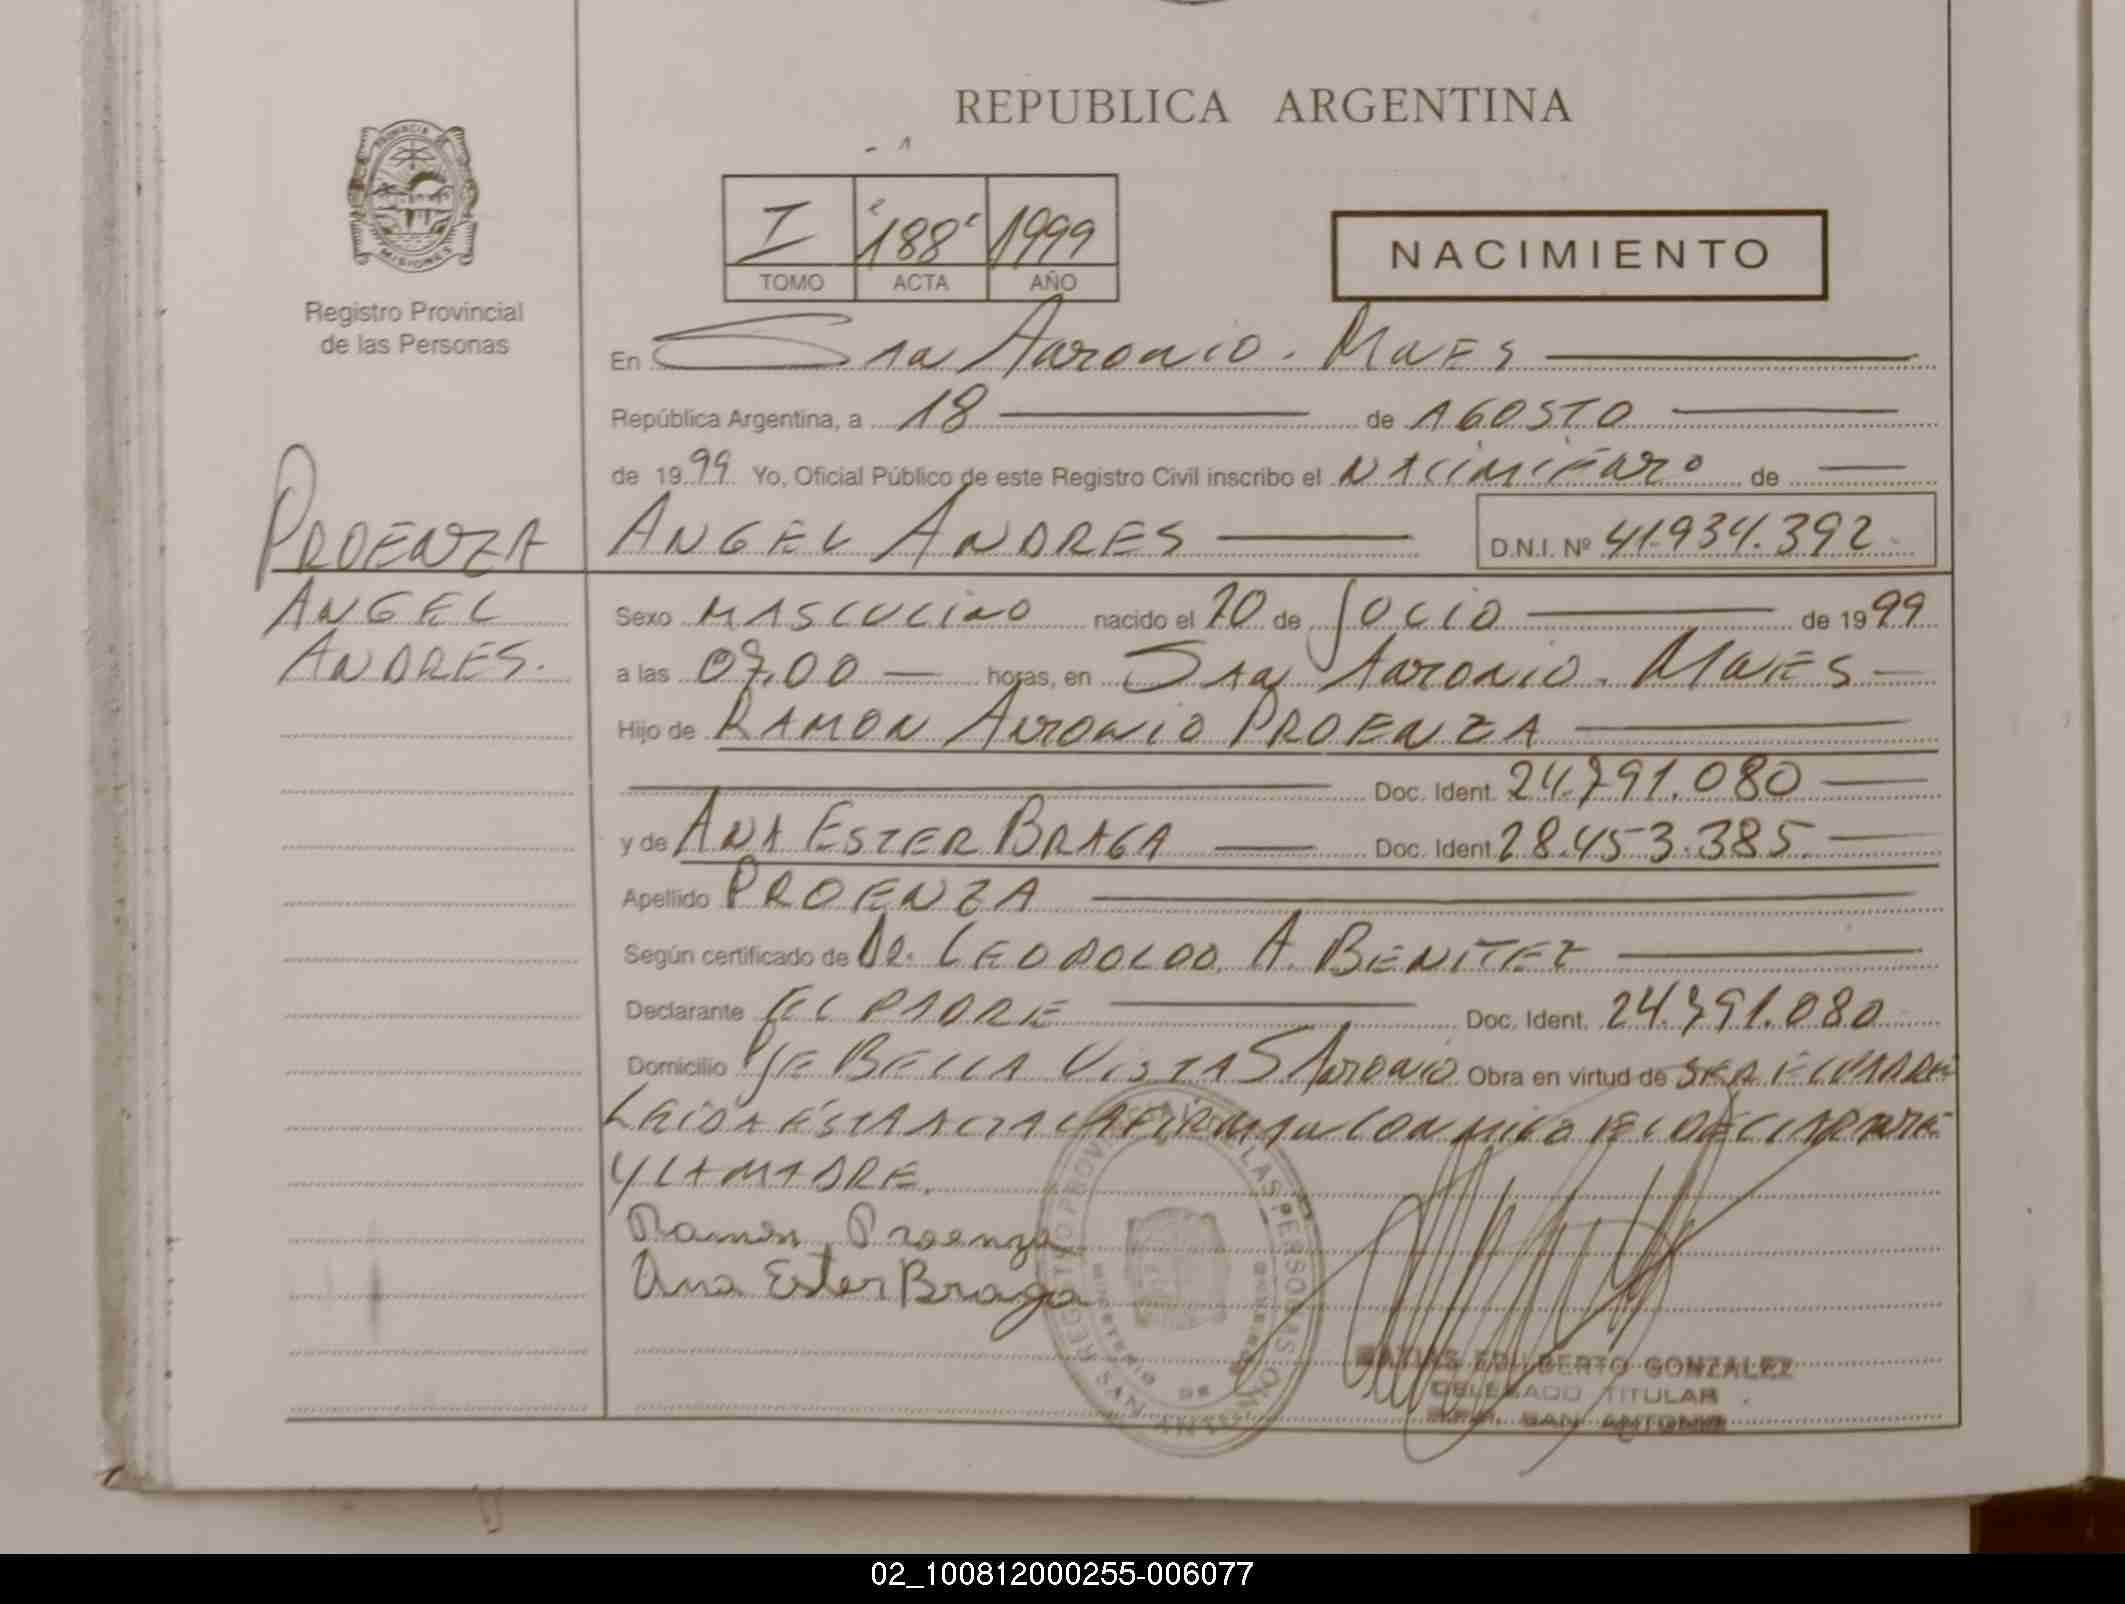 REPUBLICA ARGENTINA
PROVINCIA
MISIONES
Registro Provincial
de las Personas
I 188 1999
TOMO ACTA AÑO
NACIMIENTO
En San Antonio. Mnes
República Argentina, a 18 de AGOSTO
de 1999 Yo, Oficial Público de este Registro Civil inscribo el NACIMIENTO de
PROENZA
ANGEL
ANDRES.
ANGEL ANDRES D.N.I. Nº 41.934.392
Sexo MASCULINO nacido el 20 de JULIO de 1999
a las 07,00 horas, en San Antonio. Mnes
Hijo de RAMON ANTONIO PROENZA
Doc. Ident. 24.791.080
y de ANA ESTER BRAGA Doc. Ident. 28.453.385
Apellido PROENZA
Según certificado de DR. LEOPOLDO A. BENITEZ
Declarante EL PADRE Doc. Ident. 24.791.080
Domicilio Pje BELLA VISTA S Antonio Obra en virtud de SER EL PADRE
LEIDA ESTA ACTA LA FIRMAN CONMIGO EL DECLARANTE
Y LA MADRE.
Ramón Proenza
Ana Ester Braga
REGISTRO PROVINCIAL DE LAS PERSONAS
MINISTERIO DE GOBIERNO
SAN ANTONIO
EDILBERTO GONZALEZ
DELEGADO TITULAR
SAN ANTONIO
02_100812000255-006077